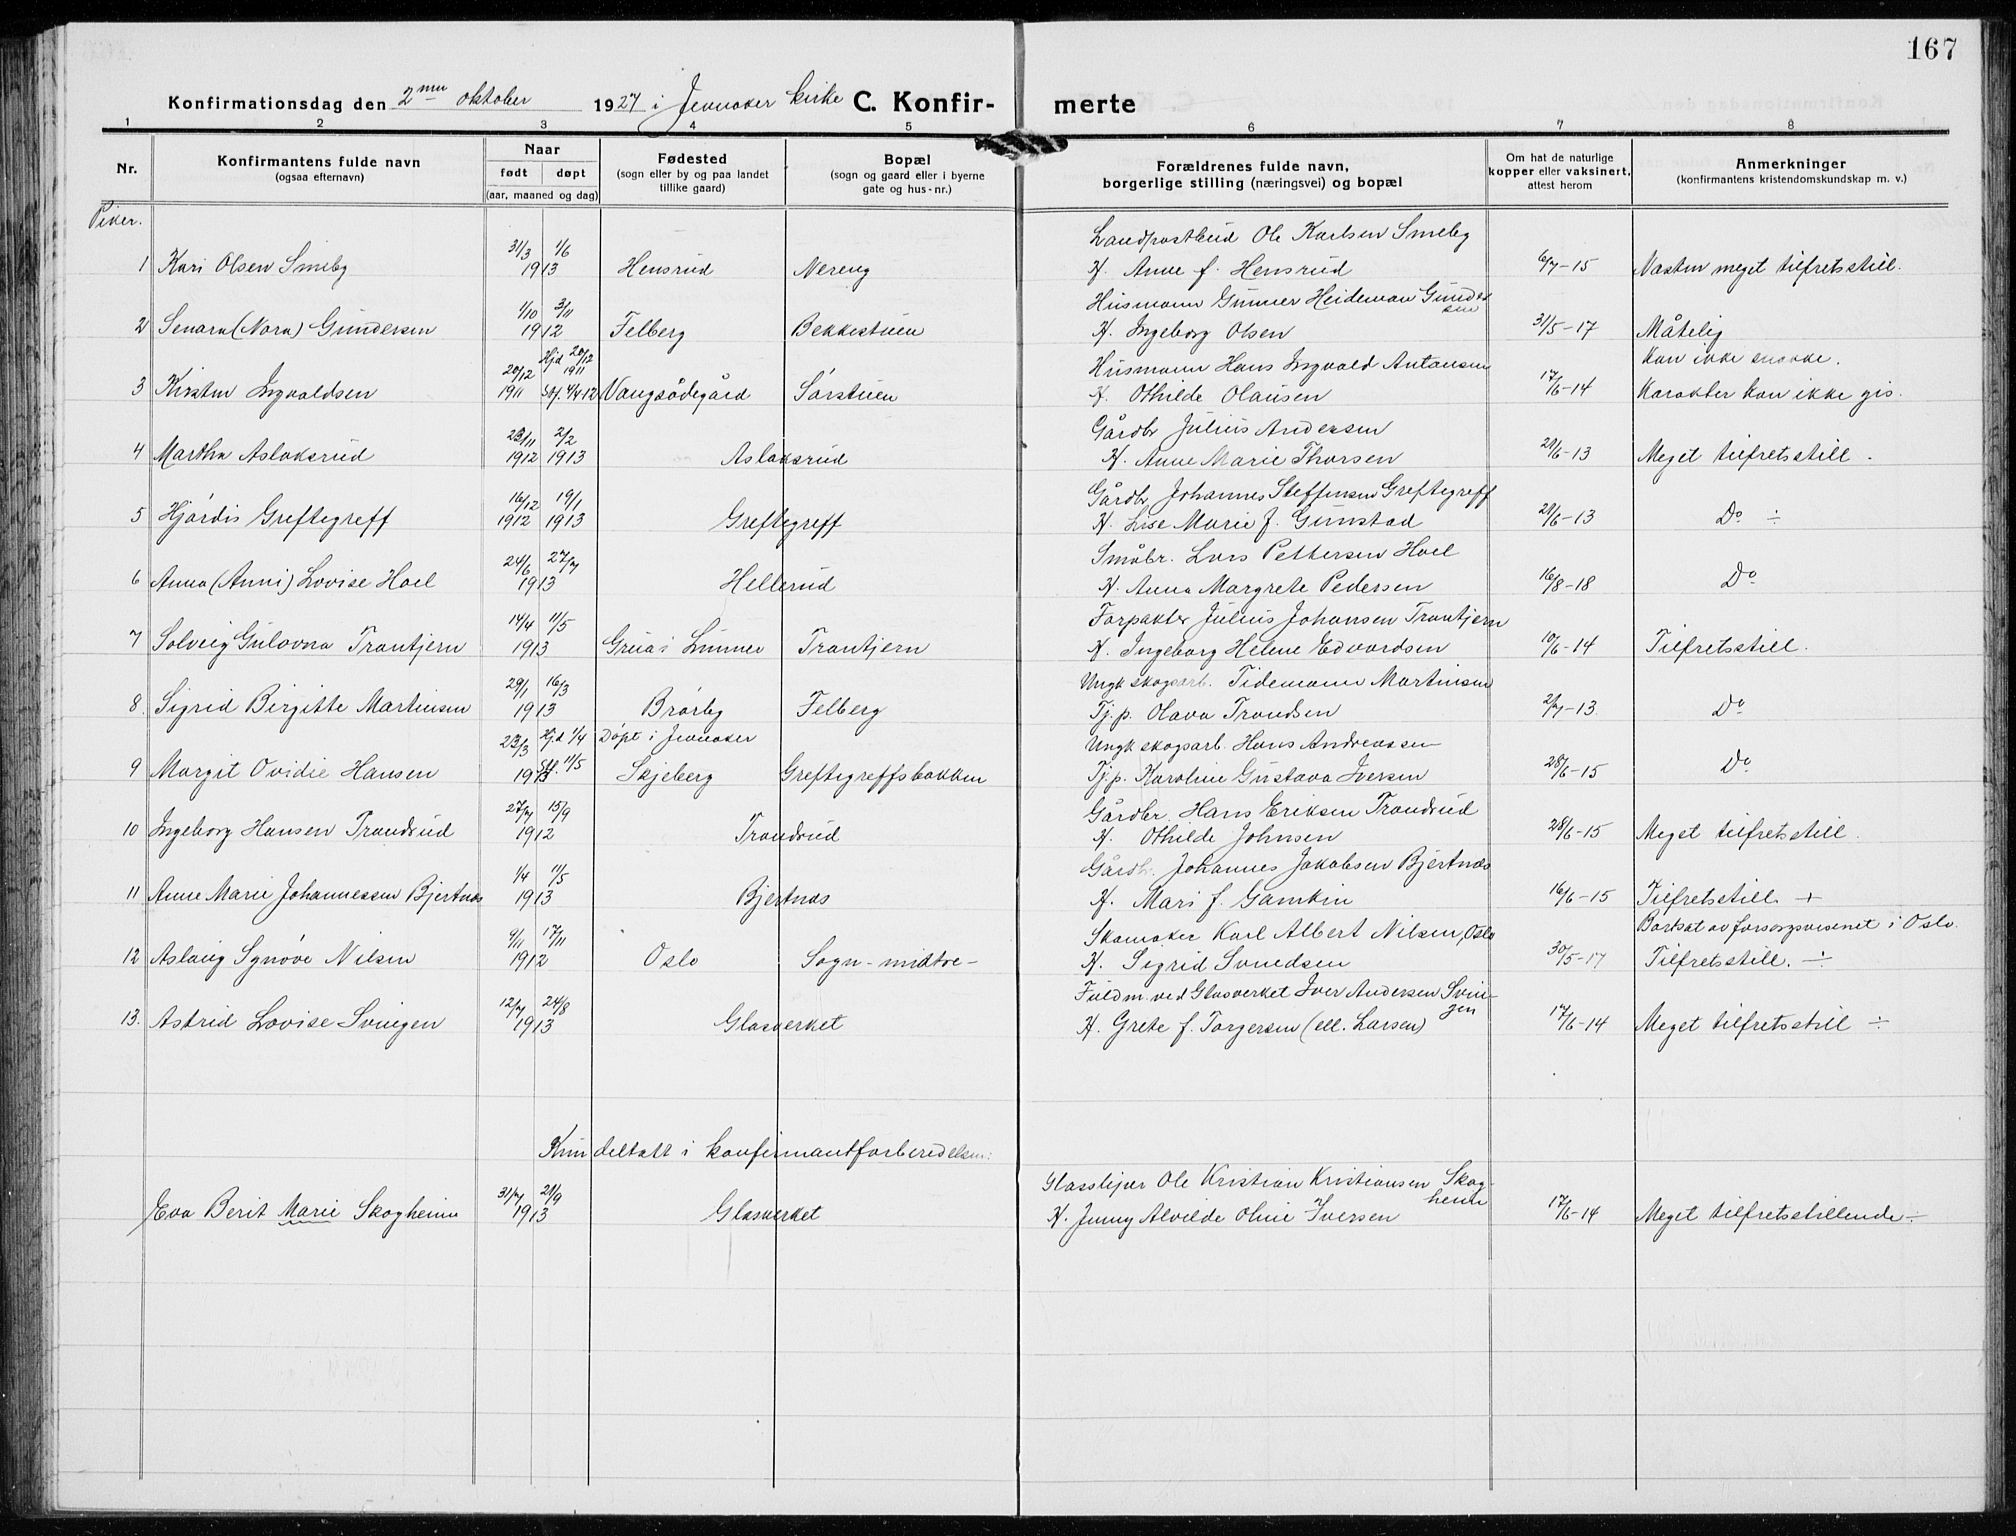 167
Konfirmationsdag den 2nen oktober 1927 i Jevnaker kirke C. Konfir- merte
1 2 3 4 5 6 7 8
Nr.
Konfirmantens fulde navn
(ogsaa efternavn)
Naar
født døpt
(aar, maaned og dag)
Fødested
(sogn eller by og paa landet
tillike gaard)
Bopæl
(sogn og gaard eller i byerne
gate og hus-nr.)
Forældrenes fulde navn,
borgerlige stilling (næringsvei) og bopæl
Om hat de naturlige
kopper eller vaksinert,
attest herom
Anmerkninger
(konfirmantens kristendomskundskap m. v.)
Piker.
Landpostbud Ole Karlsen Smeby
1 Kari Olsen Smeby 31/3 1/6 1913 Hensrud Nereng H. Anne f. Hensrud 6/7-15 Næsten meget tilfretsstill.
Husmann Gunner Heideman Gundersen
2 Senora (Nora) Gundersen 1/10 3/11 1912 Felberg Bekkestuen H. Ingeborg Olsen 31/5-17 Måtelig
Husmann Hans Ingvald Antonsen Kan ikke snakke.
3 Kirsten Ingvaldsen 20/12 1911 Hjd 20/12 1911 Stf. 4/4 12 Vangsødegård Sørstuen H. Othilde Olausen 17/6-14 Karakter kan ikke gis.
Gårdbr Julius Andersen
4 Martha Aslaksrud 23/11 1912 2/2 1913 Aslaksrud H. Anne Marie Thorsen 21/6-13 Meget tilfretsstill.
Gårdbr Johannes Steffensen Greftegreff
5 Hjørdis Greftegreff 16/12 1912 19/1 1913 Greftegreff H. Lise Marie f. Gunstad 21/6-13 Do ÷
Småbr. Lars Pettersen Hoel
6 Anna (Anni) Lovise Hoel 24/6 27/7 1913 Hellerud H. Anna Margrete Pedersen 16/8-18 Do
Forpakter Julius Johansen Trantjern
7 Solveig Gulovna Trantjern 14/4 11/5 1913 Grua i Lunner Trantjern H. Ingeborg Helene Edvardsen 10/6-14 Tilfretsstill.
Ungk skogsarb. Tidemann Martinsen
8. Sigrid Birgitte Martinsen 29/1 16/3 1913 Brørby Felberg Tj.p. Olava Trondsen 2/7-13 Do
Døpt i Jevnaker Ungk skogsarb. Hans Andreassen
9 Margit Ovidie Hansen 23/3 Hjd 1/4 Stf. 11/5 1913 Skjeberg Greftegreffsbakken Tj.p. Karoline Gustava Iversen 28/6-15 Do
Gårdbr. Hans Eriksen Trondrud
10 Ingeborg Hansen Trondrud 27/7 15/9 1912 Trondrud H. Othilde Johnsen 28/6-15 Meget tilfretsstill.
Gårdbr. Johannes Jakobsen Bjertnæs
11 Anne Marie Johannessen Bjertnæs 1/4 11/5 1913 Bjertnæs H. Mari f. Gamkin 16/6-15 Tilfretsstill. +
Skomaker Karl Albert Nilsen, Oslo Bortsat av forsorgsvesenet i Oslo.
12 Aslaug Synøve Nilsen 9/11 17/11 1912 Oslo Sogn-midtre- H. Sigrid Svendsen 30/5-17 Tilfretsstill. ÷
Fuldm. ved Glasverket Iver Andersen Svingen
13. Astrid Lovise Svingen 12/7 24/8 1913 Glasverket H. Grete f. Torgersen (ell. Larsen) 17/6-14 Meget tilfretsstill ÷
Kun deltatt i konfirmantforberedelsen:
Glassliper Ole Kristian Kristiansen Skogheim
Eva Berit Marie Skogheim 31/7 21/9 1913 Glasverket H. Jenny Alvilde Oline Iversen 17/6-14 Meget tilfretsstillende ÷